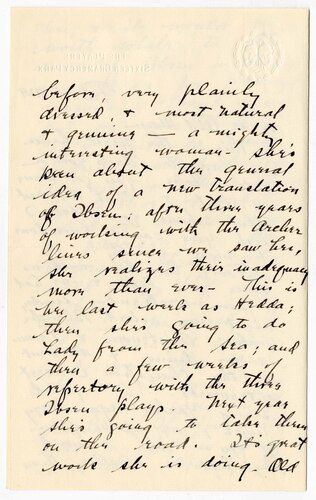 before, very plainly
dressed, & most natural
& genuine — a mighty
interesting woman. She's
keen about the general
idea of a new translation
of Ibsen; after three years
of working with the Archer
lines since we saw her,
she realizes their inadequacy
more than ever — This is
her last week as Hedda;
then she's going to do
Lady from the Sea; and
then a few weeks of
repertory with the three
Ibsen plays. Next year
she's going to take them
on the road. It's great
work she is doing. Old